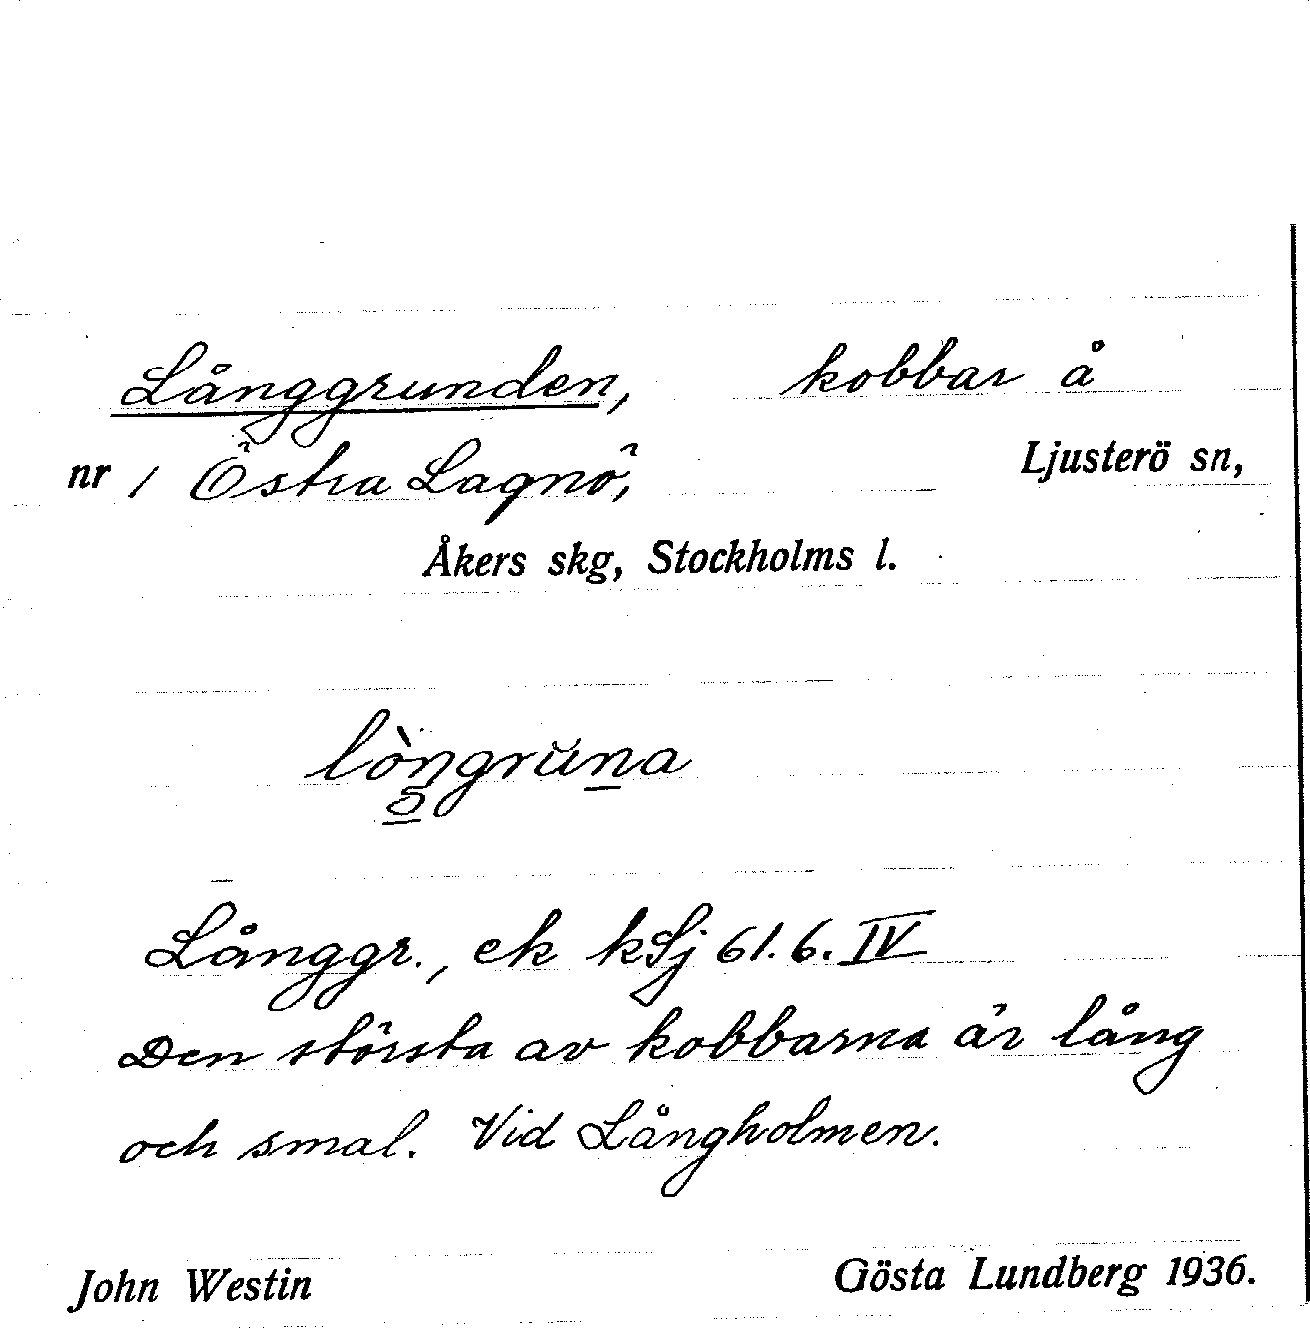 Långgrunden, kobbar å
nr 1 Östra Lagnö, Ljusterö sn,
Åkers skg, Stockholms l.
Långgr., ek kSj 61.6.IV
Den största av kobbarna är lång
och smal. Vid Långholmen.
John Westin Gösta Lundberg 1936.